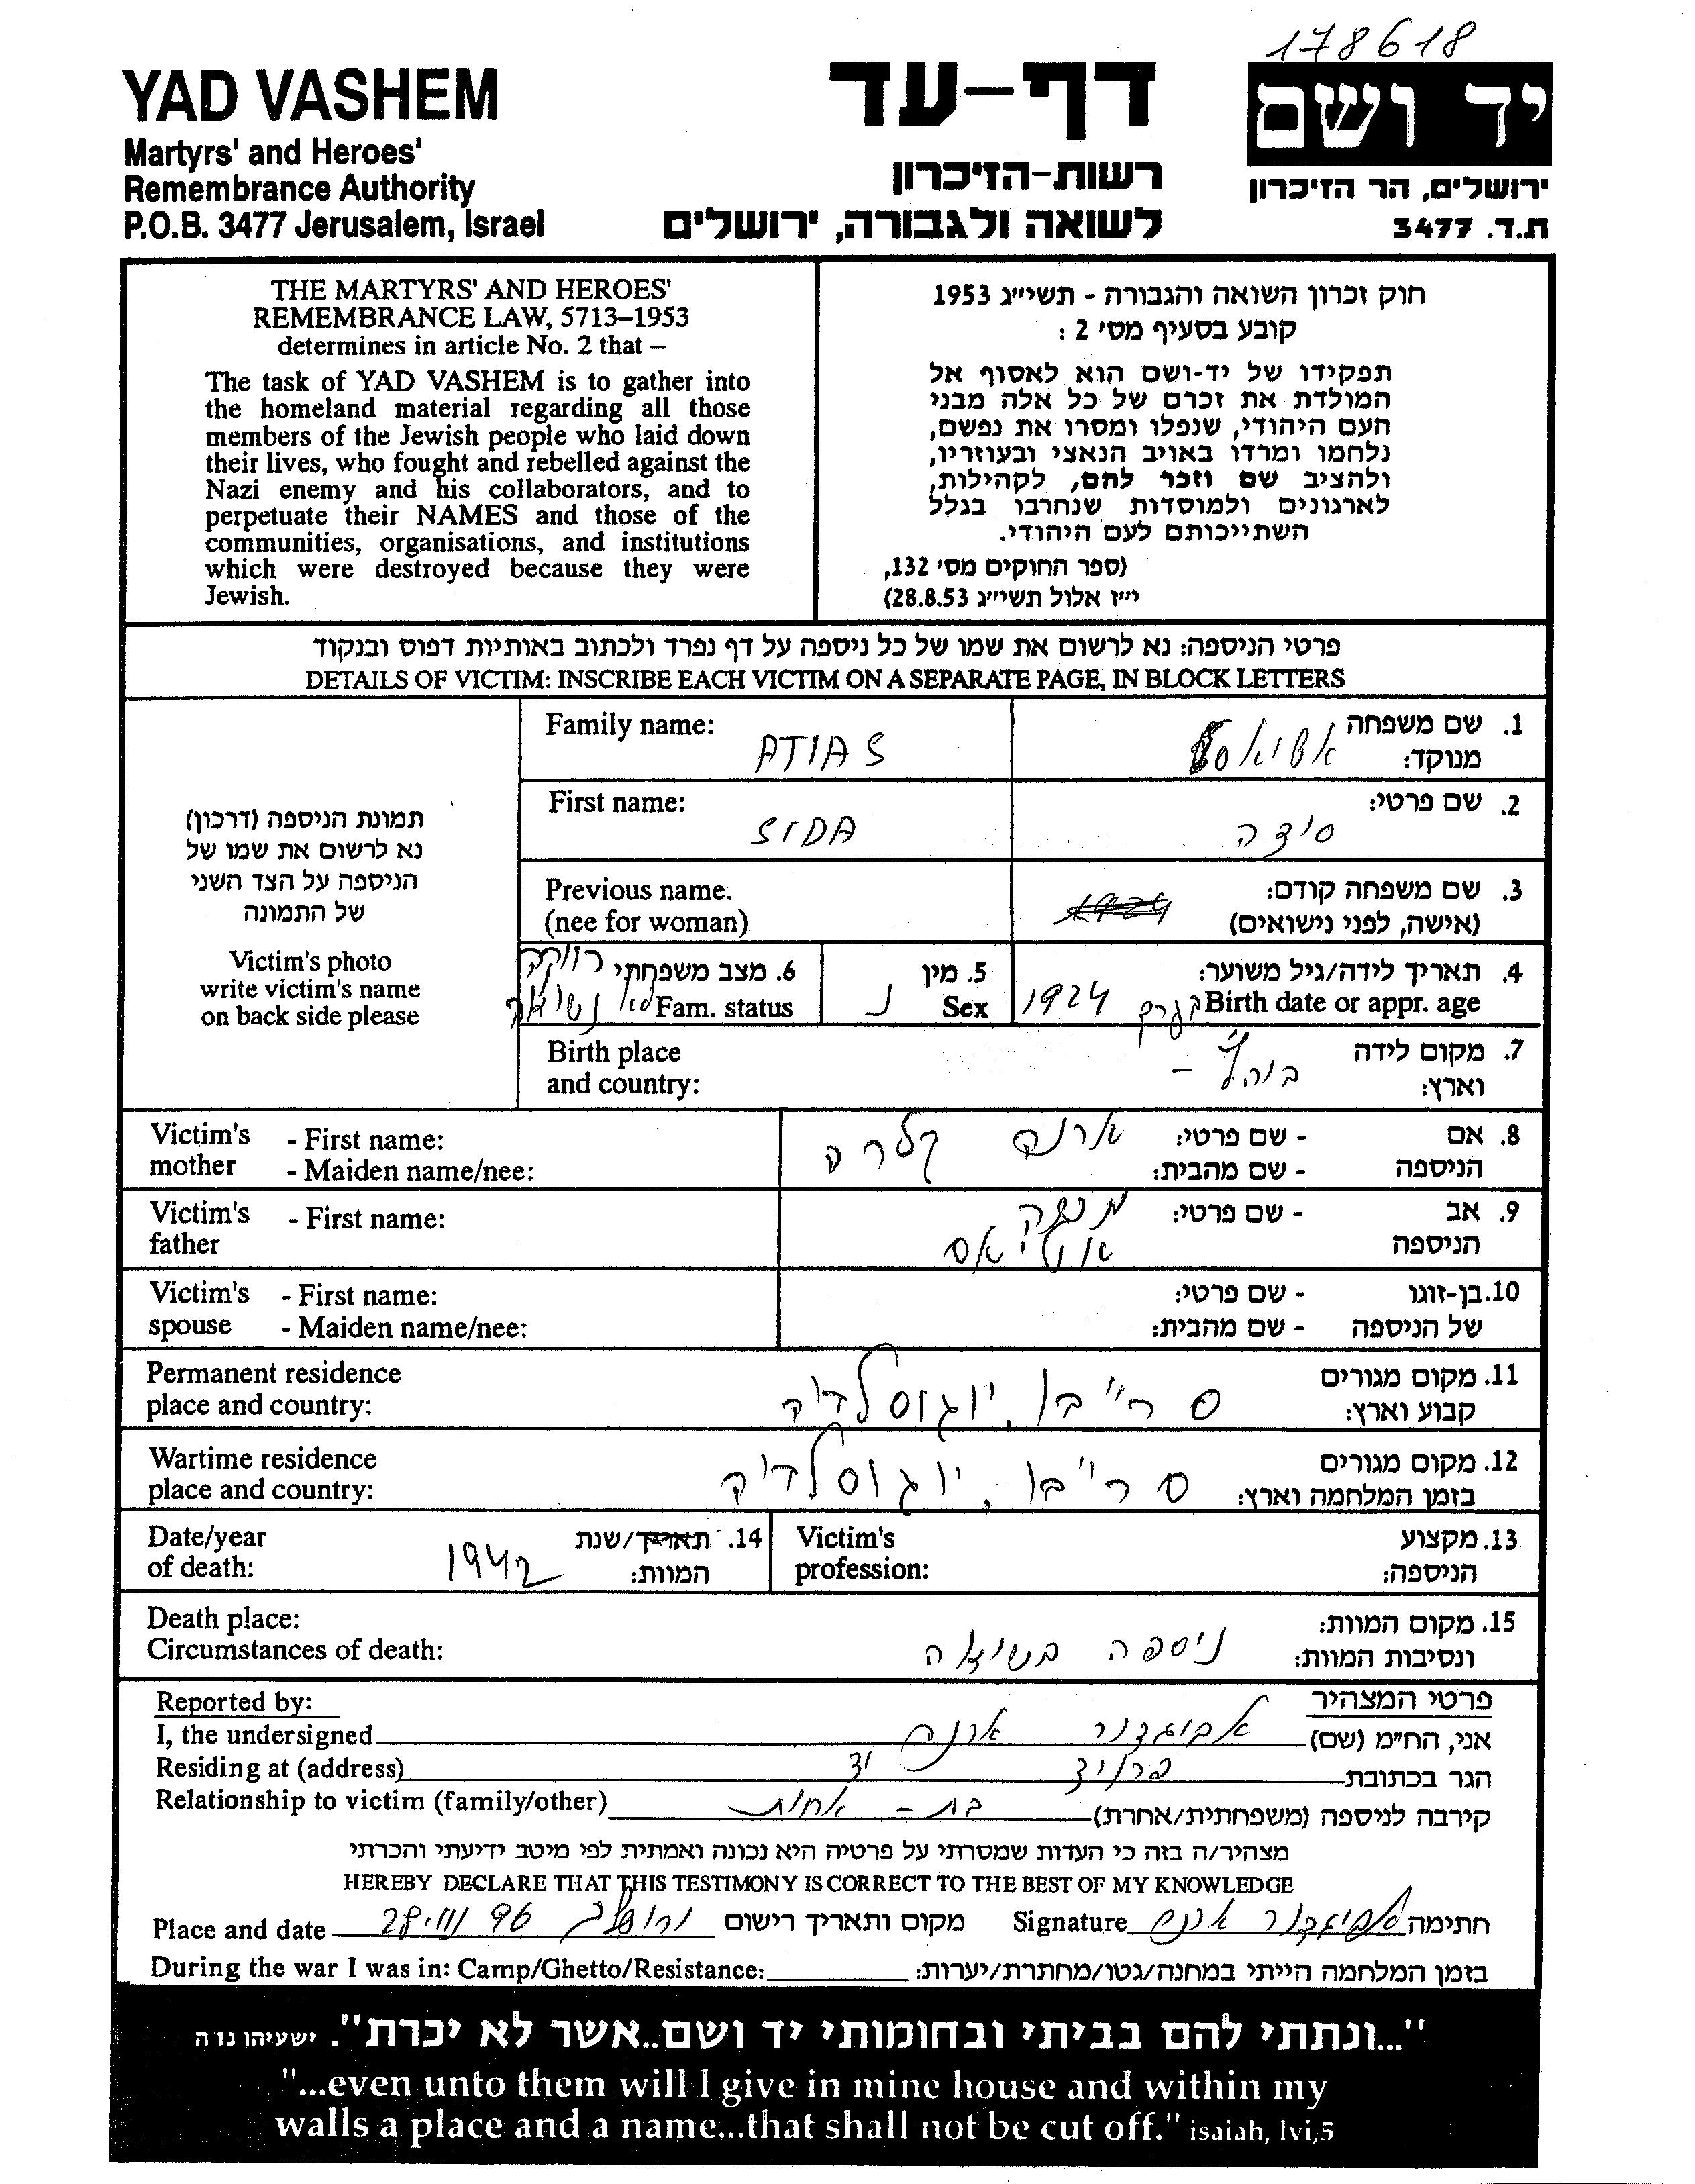 178618
YAD VASHEM
Martyrs' and Heroes'
Remembrance Authority
P.O.B. 3477 Jerusalem, Israel
דף-עד
רשות-הזיכרון
לשואה ולגבורה, ירושלים
יד ושם
ירושלים, הר הזיכרון
ת.ד. 3477
THE MARTYRS' AND HEROES'
REMEMBRANCE LAW, 5713–1953
determines in article No. 2 that –
The task of YAD VASHEM is to gather into
the homeland material regarding all those
members of the Jewish people who laid down
their lives, who fought and rebelled against the
Nazi enemy and his collaborators, and to
perpetuate their NAMES and those of the
communities, organisations, and institutions
which were destroyed because they were
Jewish.
חוק זכרון השואה והגבורה - תשי״ג 1953
קובע בסעיף מס׳ 2 :
תפקידו של יד-ושם הוא לאסוף אל
המולדת את זכרם של כל אלה מבני
העם היהודי, שנפלו ומסרו את נפשם,
נלחמו ומרדו באויב הנאצי ובעוזריו,
ולהציב שם וזכר להם, לקהילות,
לארגונים ולמוסדות שנחרבו בגלל
השתייכותם לעם היהודי.
(ספר החוקים מס׳ 132,
י״ז אלול תשי״ג 28.8.53)
פרטי הניספה: נא לרשום את שמו של כל ניספה על דף נפרד ולכתוב באותיות דפוס ובנקוד
DETAILS OF VICTIM: INSCRIBE EACH VICTIM ON A SEPARATE PAGE, IN BLOCK LETTERS
תמונת הניספה (דרכון)
נא לרשום את שמו של
הניספה על הצד השני
של התמונה
Victim's photo
write victim's name
on back side please
Family name: ATIAS
1. שם משפחה מנוקד: אטיאס
First name: SIDA
2. שם פרטי: סידה
Previous name.
(nee for woman)
3. שם משפחה קודם:
(אישה, לפני נישואים)
4. תאריך לידה/גיל משוער: 1924
Birth date or appr. age
5. מין נ
Sex
6. מצב משפחתי רווקה
Fam. status לא נשואה
Birth place
and country:
7. מקום לידה
וארץ:
Victim's mother - First name:
- Maiden name/nee:
8. אם הניספה - שם פרטי: ארנה קלרה
- שם מהבית:
Victim's father - First name:
9. אב הניספה - שם פרטי:
אטיאס
Victim's spouse - First name:
- Maiden name/nee:
10. בן-זוגו של הניספה - שם פרטי:
- שם מהבית:
Permanent residence
place and country:
11. מקום מגורים
קבוע וארץ: סר״בו, יוגוסלדיה
Wartime residence
place and country:
12. מקום מגורים
בזמן המלחמה וארץ: סר״בו, יוגוסלדיה
Date/year
of death:
14. תאריך/שנת
המוות: 1942
Victim's
profession:
13. מקצוע
הניספה:
Death place:
Circumstances of death:
15. מקום המוות:
ונסיבות המוות: ניספה בשואה
Reported by:
פרטי המצהיר
I, the undersigned
אני, הח״מ (שם) אביגדור ארנה
Residing at (address)
הגר בכתובת פרויד
Relationship to victim (family/other)
קירבה לניספה (משפחתית/אחרת) בת - אחות
מצהיר/ה בזה כי העדות שמסרתי על פרטיה היא נכונה ואמתית לפי מיטב ידיעתי והכרתי
HEREBY DECLARE THAT THIS TESTIMONY IS CORRECT TO THE BEST OF MY KNOWLEDGE
Place and date 28.III 96 מקום ותאריך רישום
Signature אביגדור ארנה חתימה
During the war I was in: Camp/Ghetto/Resistance:
בזמן המלחמה הייתי במחנה/גטו/מחתרת/יערות:
"...ונתתי להם בביתי ובחומותי יד ושם..אשר לא יכרת". ישעיהו נו ה
"...even unto them will I give in mine house and within my
walls a place and a name...that shall not be cut off." isaiah, lvi,5